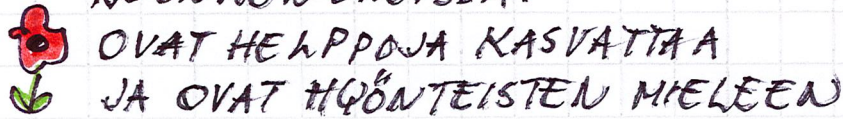 OVAT HELPPOJA KASVATTAA
JA OVAT HYÖNTEISTEN MIELEEN